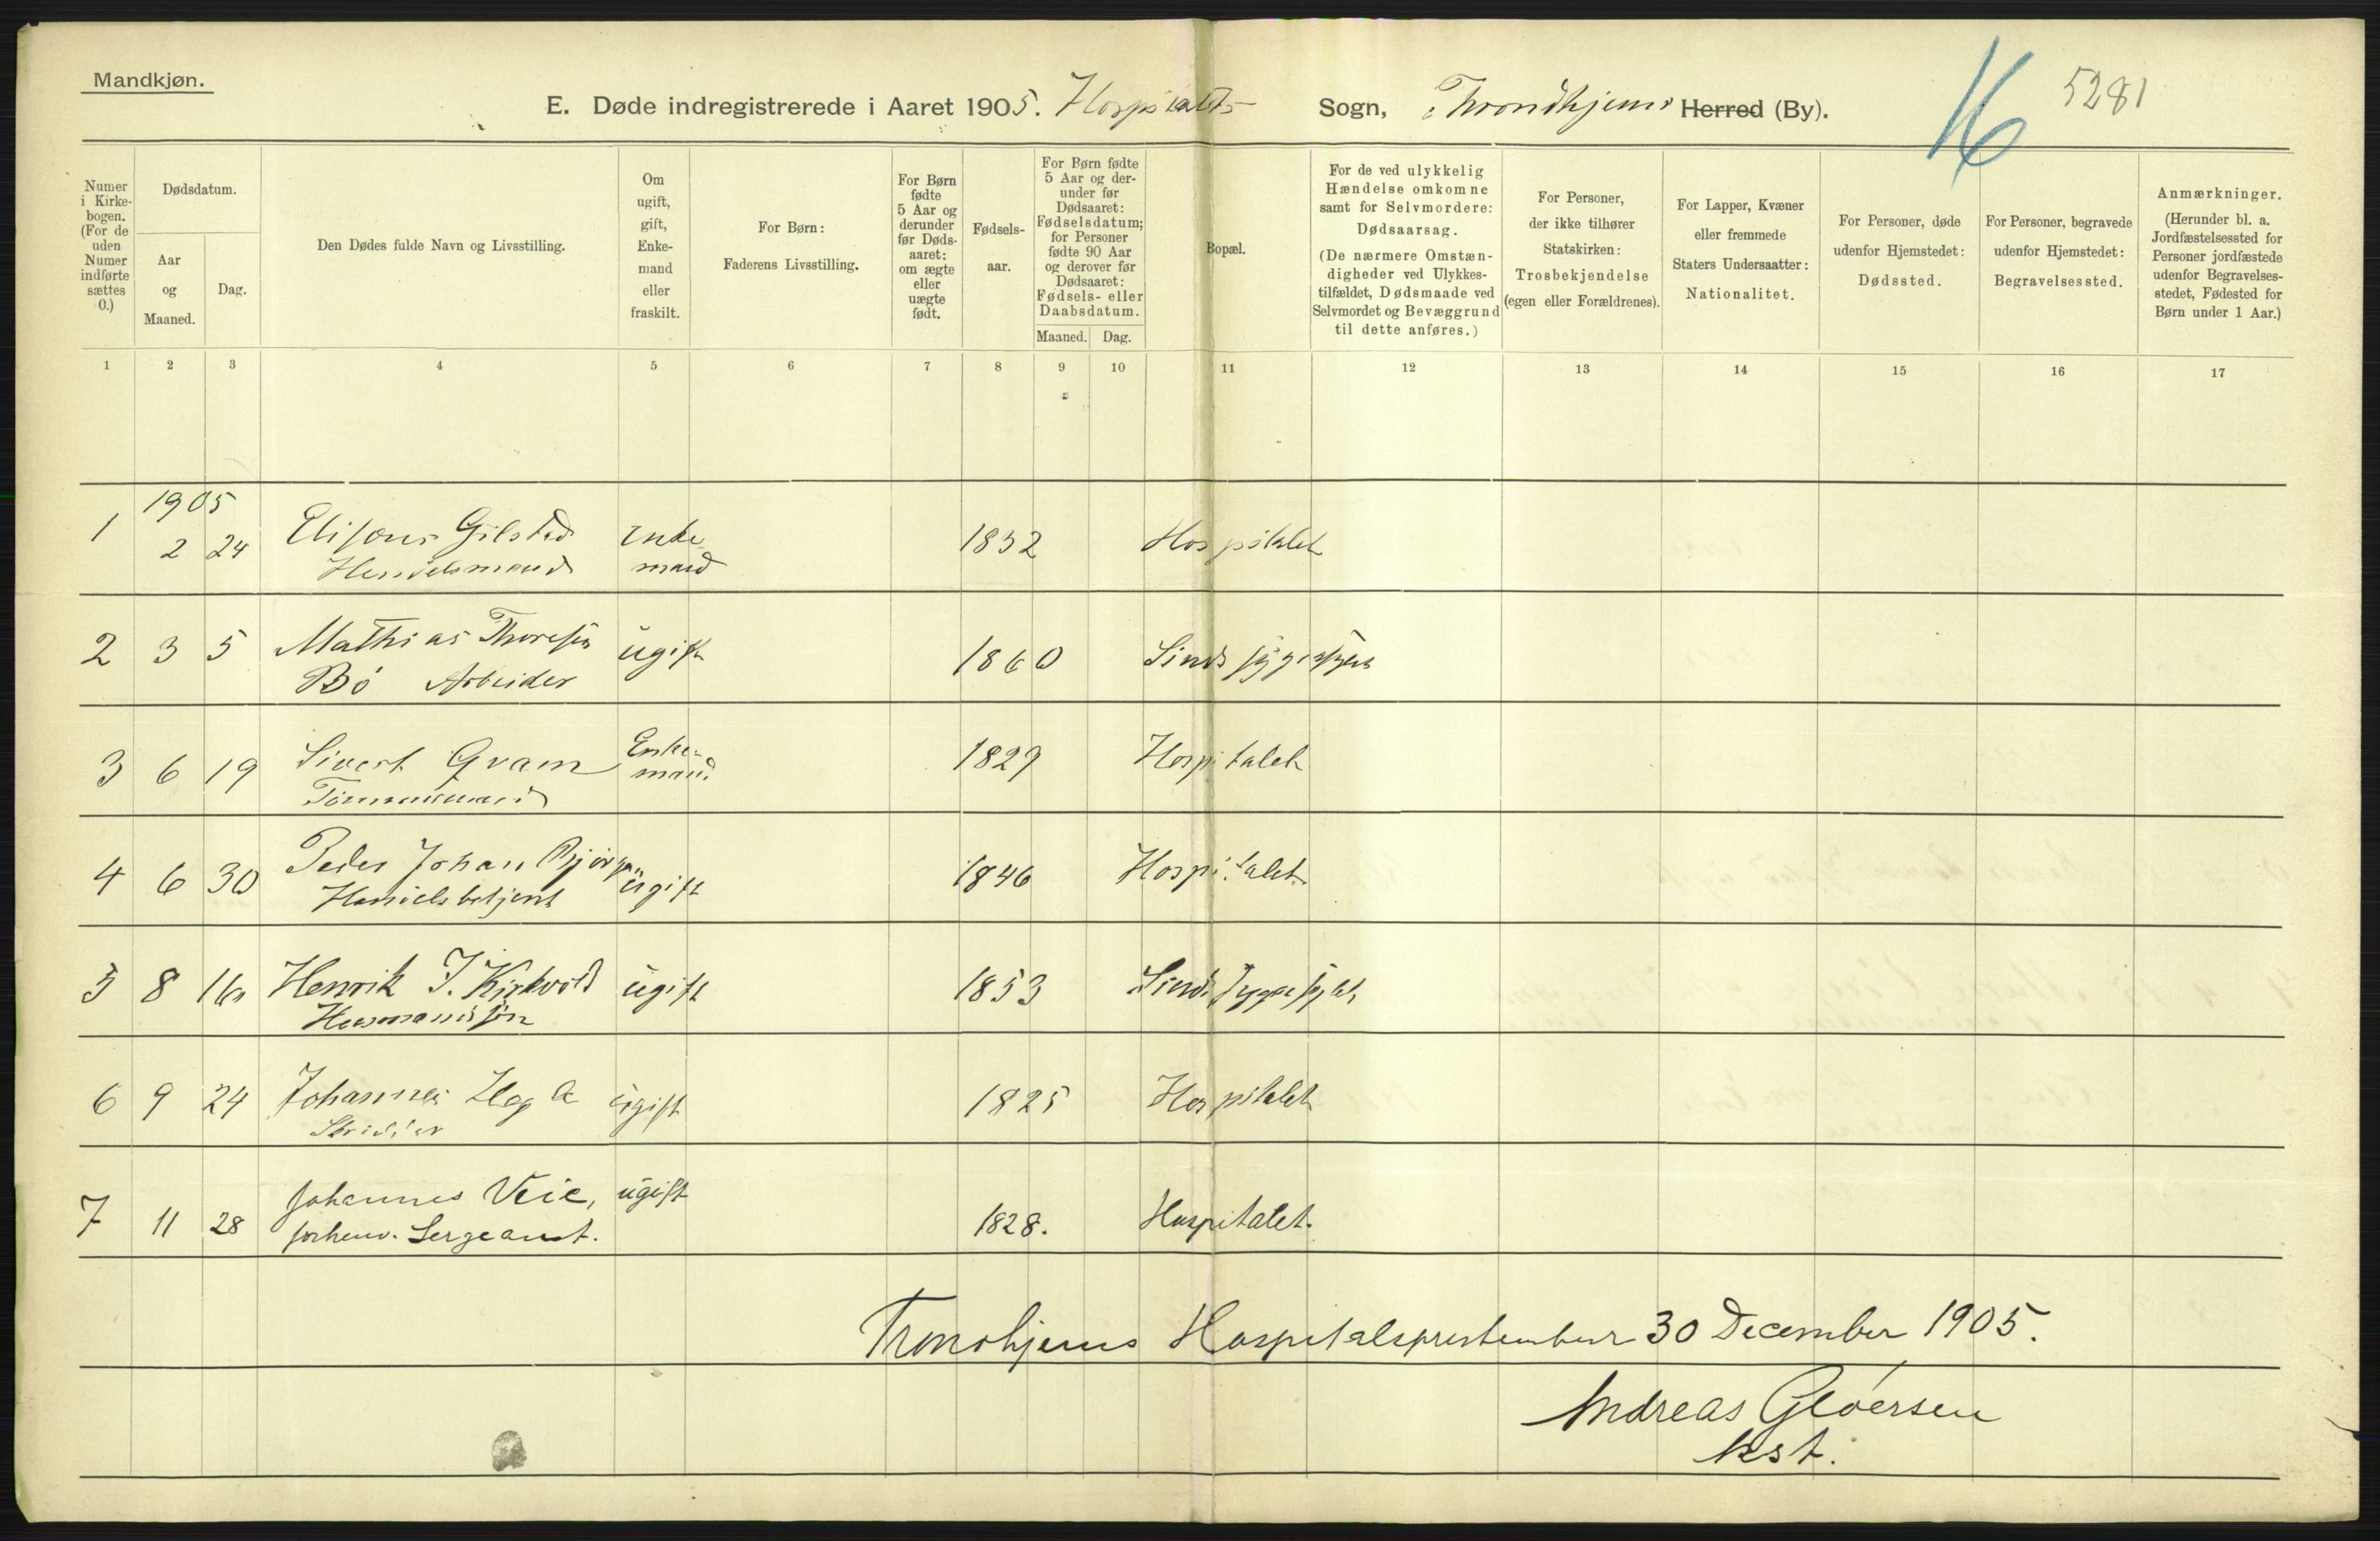 Mandkjøn.
E. Døde indregistrerede i Aaret 1905. Hospitalets Sogn, Throndhjems Herred (By).
16
5281
Numer i Kirke-bogen. (For de uden Numer indførte sættes 0.)
Dødsdatum.
Aar og Maaned.
Dag.
Den Dødes fulde Navn og Livsstilling.
Om ugift, gift, Enke-mand eller fraskilt.
For Børn: Faderens Livsstilling.
For Børn fødte 5 Aar og derunder før Døds-aaret: om ægte eller uægte født.
Fødsels-aar.
For Børn fødte 5 Aar og der-under før Dødsaaret: Fødselsdatum; for Personer fødte 90 Aar og derover før Dødsaaret: Fødsels- eller Daabsdatum.
Maaned. Dag.
Bopæl.
For de ved ulykkelig Hændelse omkomne samt for Selvmordere: Dødsaarsag. (De nærmere Omstæn-digheder ved Ulykkes-tilfældet, Dødsmaade ved Selvmordet og Bevæggrund til dette anføres.)
For Personer, der ikke tilhører Statskirken: Trosbekjendelse (egen eller Forældrenes).
For Lapper, Kvæner eller fremmede Staters Undersaatter: Nationalitet.
For Personer, døde udenfor Hjemstedet: Dødssted.
For Personer, begravede udenfor Hjemstedet: Begravelsessted.
Anmærkninger. (Herunder bl. a. Jordfæstelsessted for Personer jordfæstede udenfor Begravelses-stedet, Fødested for Børn under 1 Aar.)
1 2 3 4 5 6 7 8 9 10 11 12 13 14 15 16 17
1905
1 2 24 Gilstad Enke- 1832 Hospitalet
Handelsmand mand
2 3 5 Mathias Thoresen ugift 1860 Sindssygeasylet
Bö Arbeider
3 6 19 Sivert Gram Enke- 1829 Hospitalet
Tömmermand mand
4 6 30 Peder Johan ugift 1846 Hospitalet
Handelsbetjent
5 8 16 Henrik J. Kirkvold ugift 1853
Hermanssön
6 9 24 Johannes ugift 1825 Hospitalet
7 11 28 Johannes Veie, ugift 1828. Hospitalet.
forhenv. Sergeant.
Trondhjems Hospitalsprestembede 30 December 1905.
Andreas Gløersen
kst.